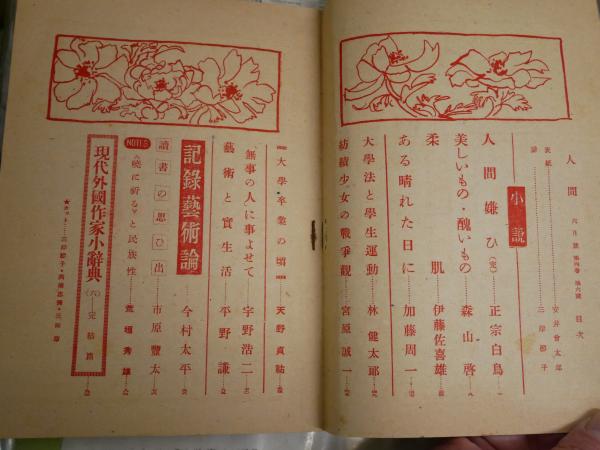 人間 六月號 第四卷 第六號 目次
表紙……安井曾太郎
扉……三岸節子
小説
人間嫌ひ(完)……正宗白鳥
美しいもの・醜いもの……森山啓
柔肌……伊藤佐喜雄
ある晴れた日に……加藤周一
大學法と學生運動……林健太郎
紡績少女の戰爭觀……宮原誠一
大學卒業の頃……天野貞祐
「無事の人」に事よせて……宇野浩二
藝術と實生活……平野謙
記錄藝術論……今村太平
讀書の思ひ出……市原豐太
NOTES
《曉に祈る》と民族性……荒垣秀雄
現代外國作家小辭典(六)完結篇
★カット……三岸節子・